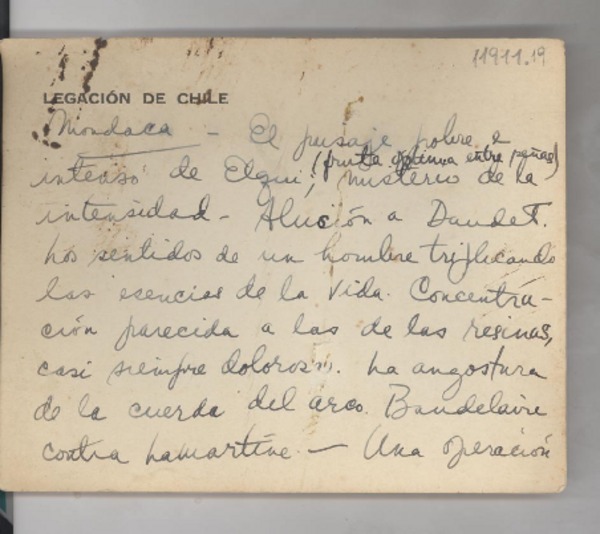 11911.19
LEGACIÓN DE CHILE
Mondaca - El paisaje pobre e
(fruta óptima entre peñas)
intenso de Elqui; misterio de la
intensidad - Alusión a Daudet.
Los sentidos de un hombre triplicando
las esencias de la vida. Concentra-
ción parecida a las de las resinas,
casi siempre dolorosa. La angostura
de la cuerda del arco. Baudelaire
contra Lamartine. — Una operación